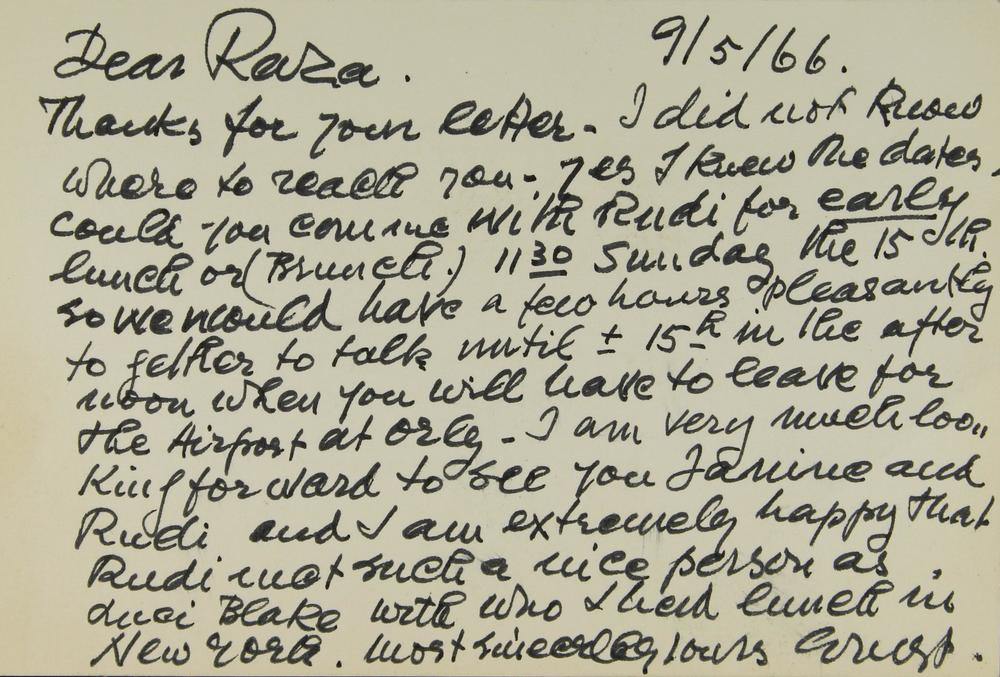 Dear Raza. 9/5/66.
Thanks for your letter. I did not know
where to reach you. yes I knew the dates.
could you come with Rudi for early
lunch or (Brunch.) 11 30 Sunday the 15th.
so we would have a few hours pleasantly
to gether to talk until ± 15 h in the after
noon when you will have to leave for
the Airport at Orly - I am very much loo,,
King forward to see you Janine and
Rudi and I am extremely happy that
Rudi met such a nice person as
Luci Blake with who I had lunch in
New York. most sincerely yours Ernst.